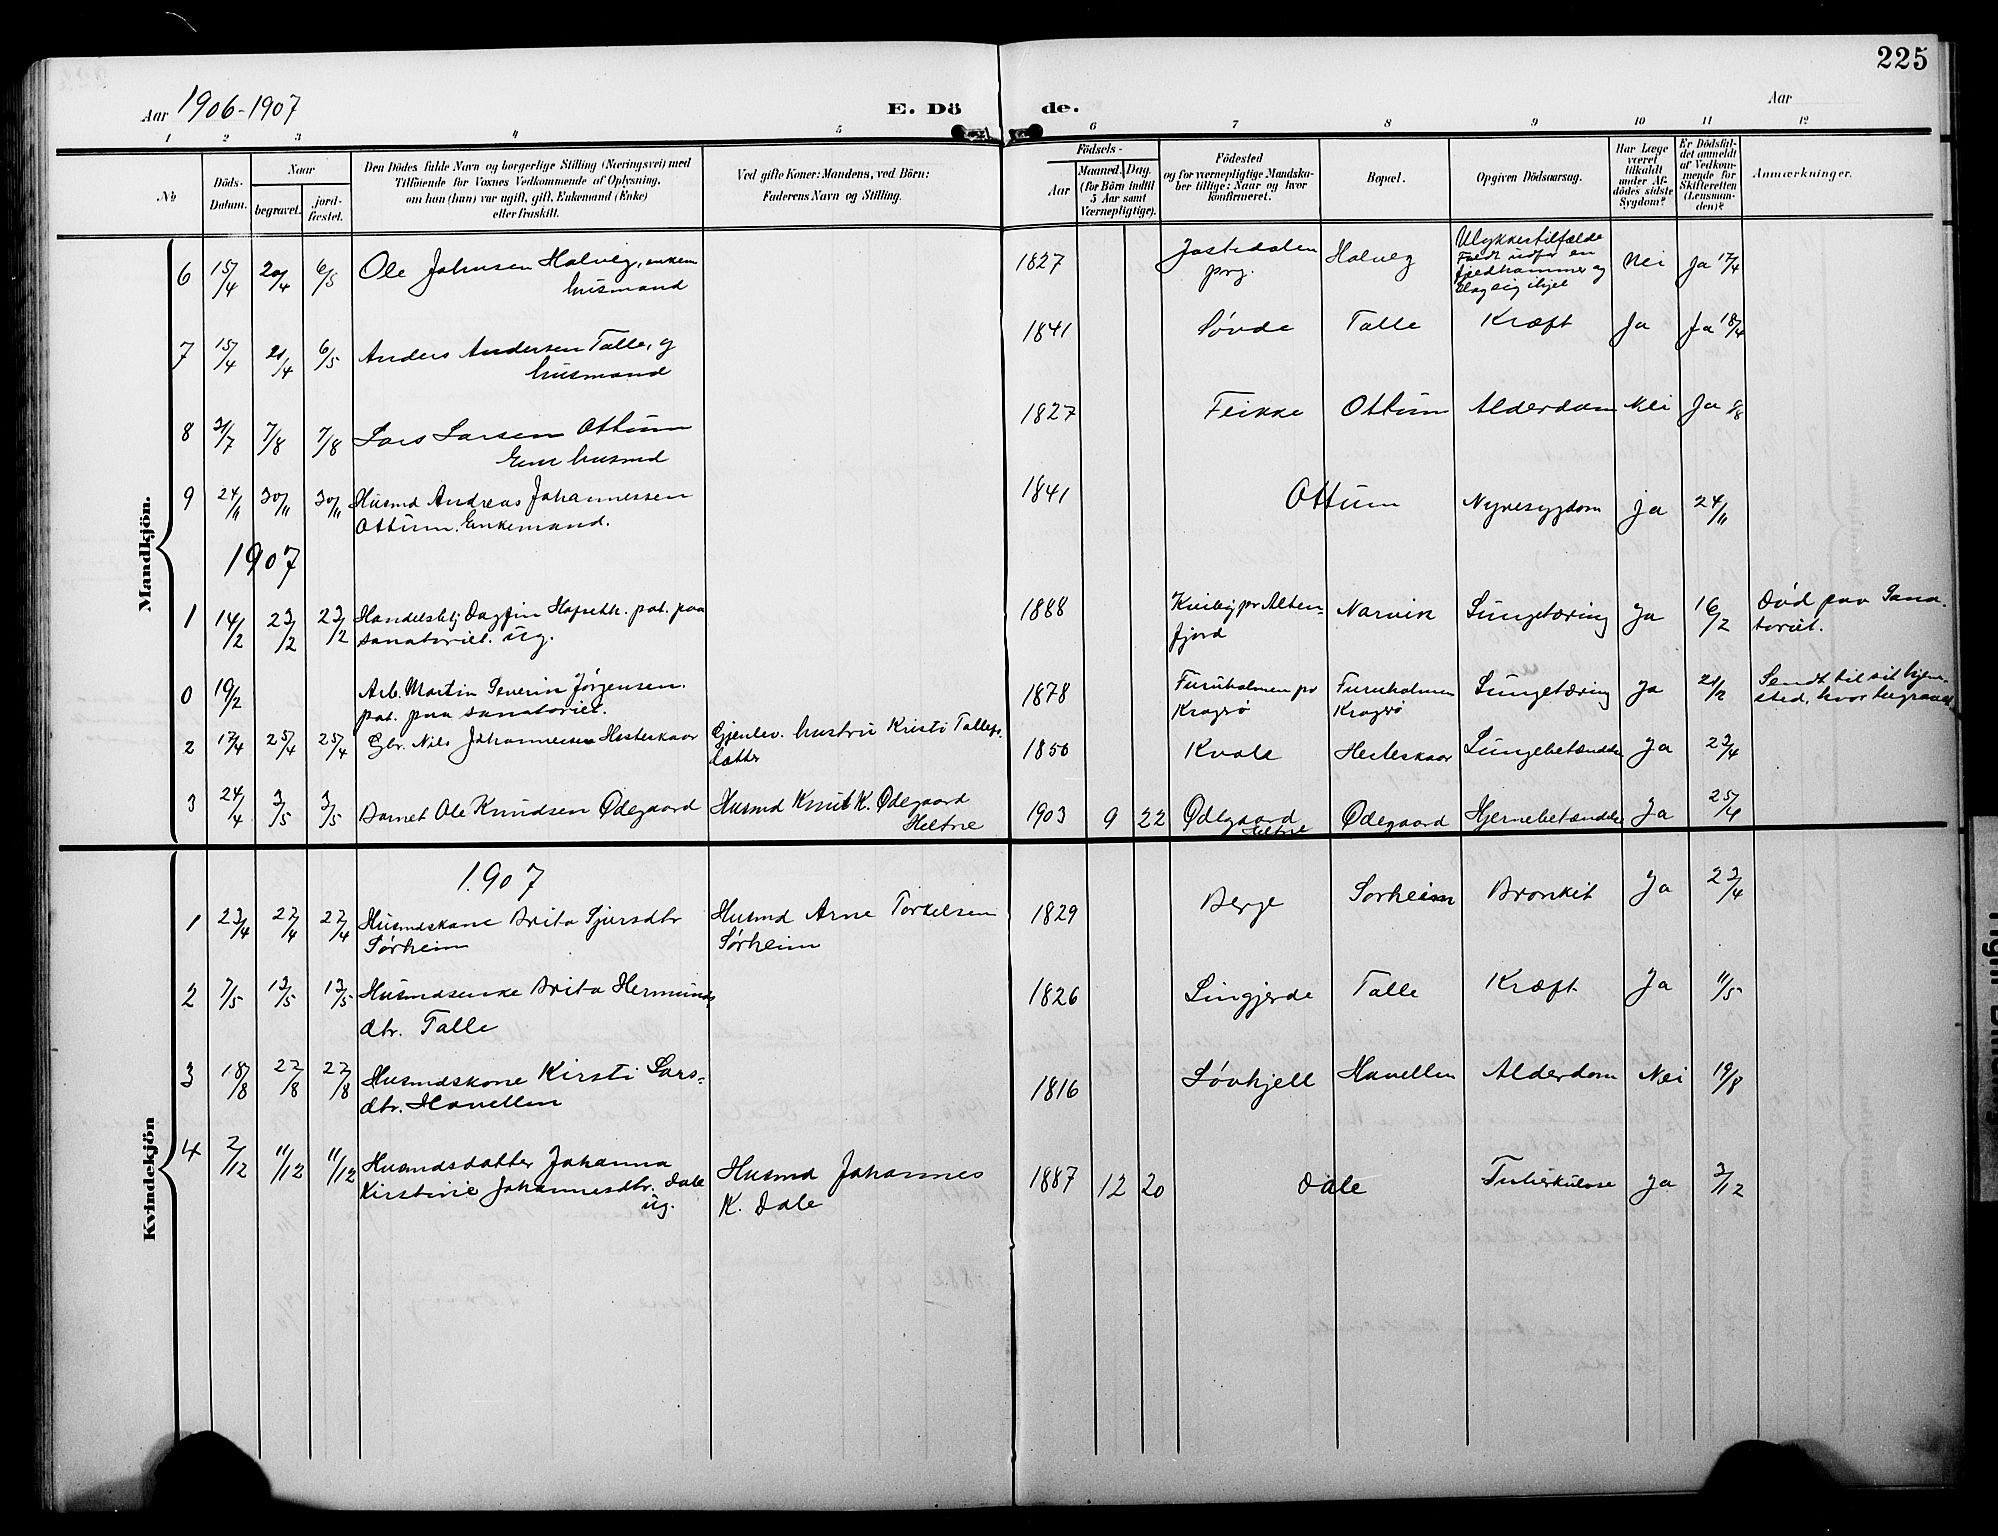 225
Aar 1906-1907
E. Dö
de.
Aar
1 2 3 4 5 6 7 8 9 10 11 12
No
Döds-
Datum.
Naar
begravet.
jord-
fæstet.
Den Dödes fulde Navn og borgerlige Stilling (Næringsvei) med
Tilföiende for Voxnes Vedkommende af Oplysning,
om han (hun) var ugift, gift, Enkemand (Enke)
eller fraskilt.
Ved gifte Koner: Mandens, ved Börn:
Faderens Navn og Stilling.
Födsels-
Aar
Maaned. Dag.
(for Börn indtil
5 Aar samt
Værnepligtige).
Födested
og for værnepligtige Mandska-
ber tillige: Naar og hvor
konfirmeret.
Bopæl.
Opgiven Dödsaarsag.
Har Læge
været
tilkaldt
under Af-
dödes sidste
Sygdom?
Er Dödsfal-
det anmeldt
af Vedkom-
mende for
Skifteretten
(Lensman-
den)?
Anmærkninger.
Mandkjön.
6 15/4 20/4 6/5 Ole Johnsen Halveg, enkem
husmand
1827 Jostedalen
prg.
Halveg
Ulykkestilfælde
Faldt udfor en
fjeldhammer og
slog sig ihjel
Nei Ja 17/4
7 15/4 21/4 6/5 Anders Andersen Talle, g
husmand
1841 Søvde Talle Kræft Ja Ja 18/4
8 31/7 7/8 7/8 Lars Larsen Ottum
Enm husmd
1827 Feikke Ottum Alderdom Nei Ja 8/8
9 24/11 30/11 30/11 Husmd Andreas Johannessen
Ottum. Enkemand.
1841 Ottum Nyresygdom Ja 24/11
1907
1 14/2 23/2 23/2 Handelsbtj Dagfin pat. paa
sanatoriet. ug.
1888 pr Alten-
fjord
Narvik Lungetæring Ja 16/2 Død paa Sana-
toriet.
0 19/2 Arb. Martin Severin Jørgensen.
pat. paa sanatoriet.
1878 Furuholmen pr
Kragerø
Furuholmen
Kragerø
Lungetæring Ja 21/2 Sendt til sit hjem-
sted, hvor begravet.
2 17/4 25/4 25/4 Gbr. Nils Johannessen Hesteskaar Gjenlev. hustru Kristi Tollefs-
datter
1850 Kvale Hesteskaar Lungebetændelse Ja 23/4
3 24/4 3/5 3/5 Barnet Ole Knudsen Ødegaard Husmd Knut K. Ødegaard
Heltne
1903 9 22 Ødegaard
Heltne
Ødegaard Hjernebetændelse Ja 25/4
Kvindekjön
1907
1 23/4 27/4 27/4 Husmdskone Brita Sjursdtr
Sørheim
Husmd Arne Torkelsen
Sørheim
1829 Berge Sørheim Bronkit Ja 23/4
2 7/5 13/5 13/5 Husmdsenke Brita Hermunds
dtr. Talle
1826 Lingjerde Talle Kræft Ja 11/5
3 18/8 27/8 27/8 Husmdskone Kirsti Lars-
dtr. Havellen
1816 Løvhjell Havellen Alderdom Nei 19/8
4 2/12 11/12 11/12 Husmdsdatter Johanna
Kirstine Johannesdtr. Dale
ug.
Husmd Johannes
K. Dale
1887 12 20 Dale Tuberkulose Ja 3/12